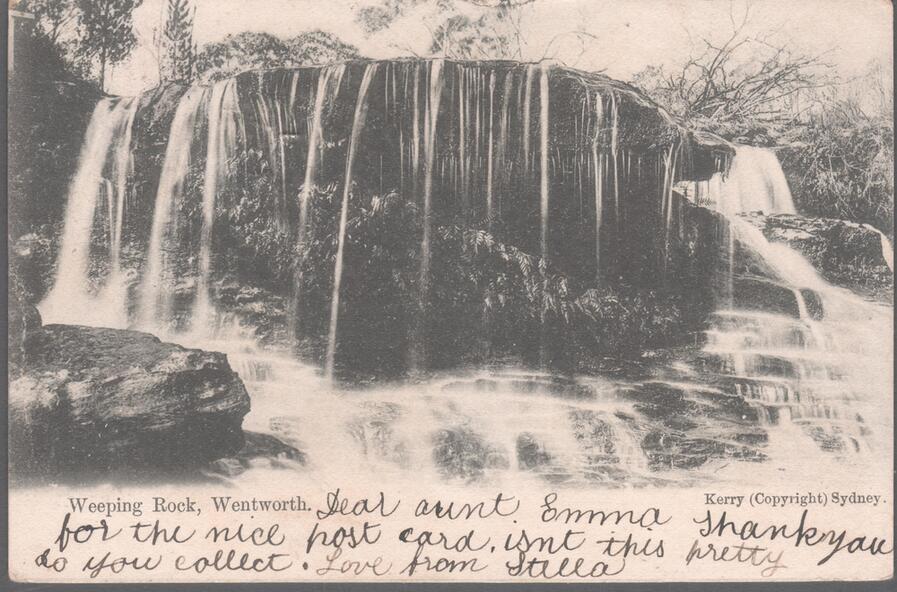 Weeping Rock, Wentworth. Dear aunt Emma Kerry (Copyright) Sydney.
for the nice post card, isnt this pretty thank you
do you collect. Love from Stella